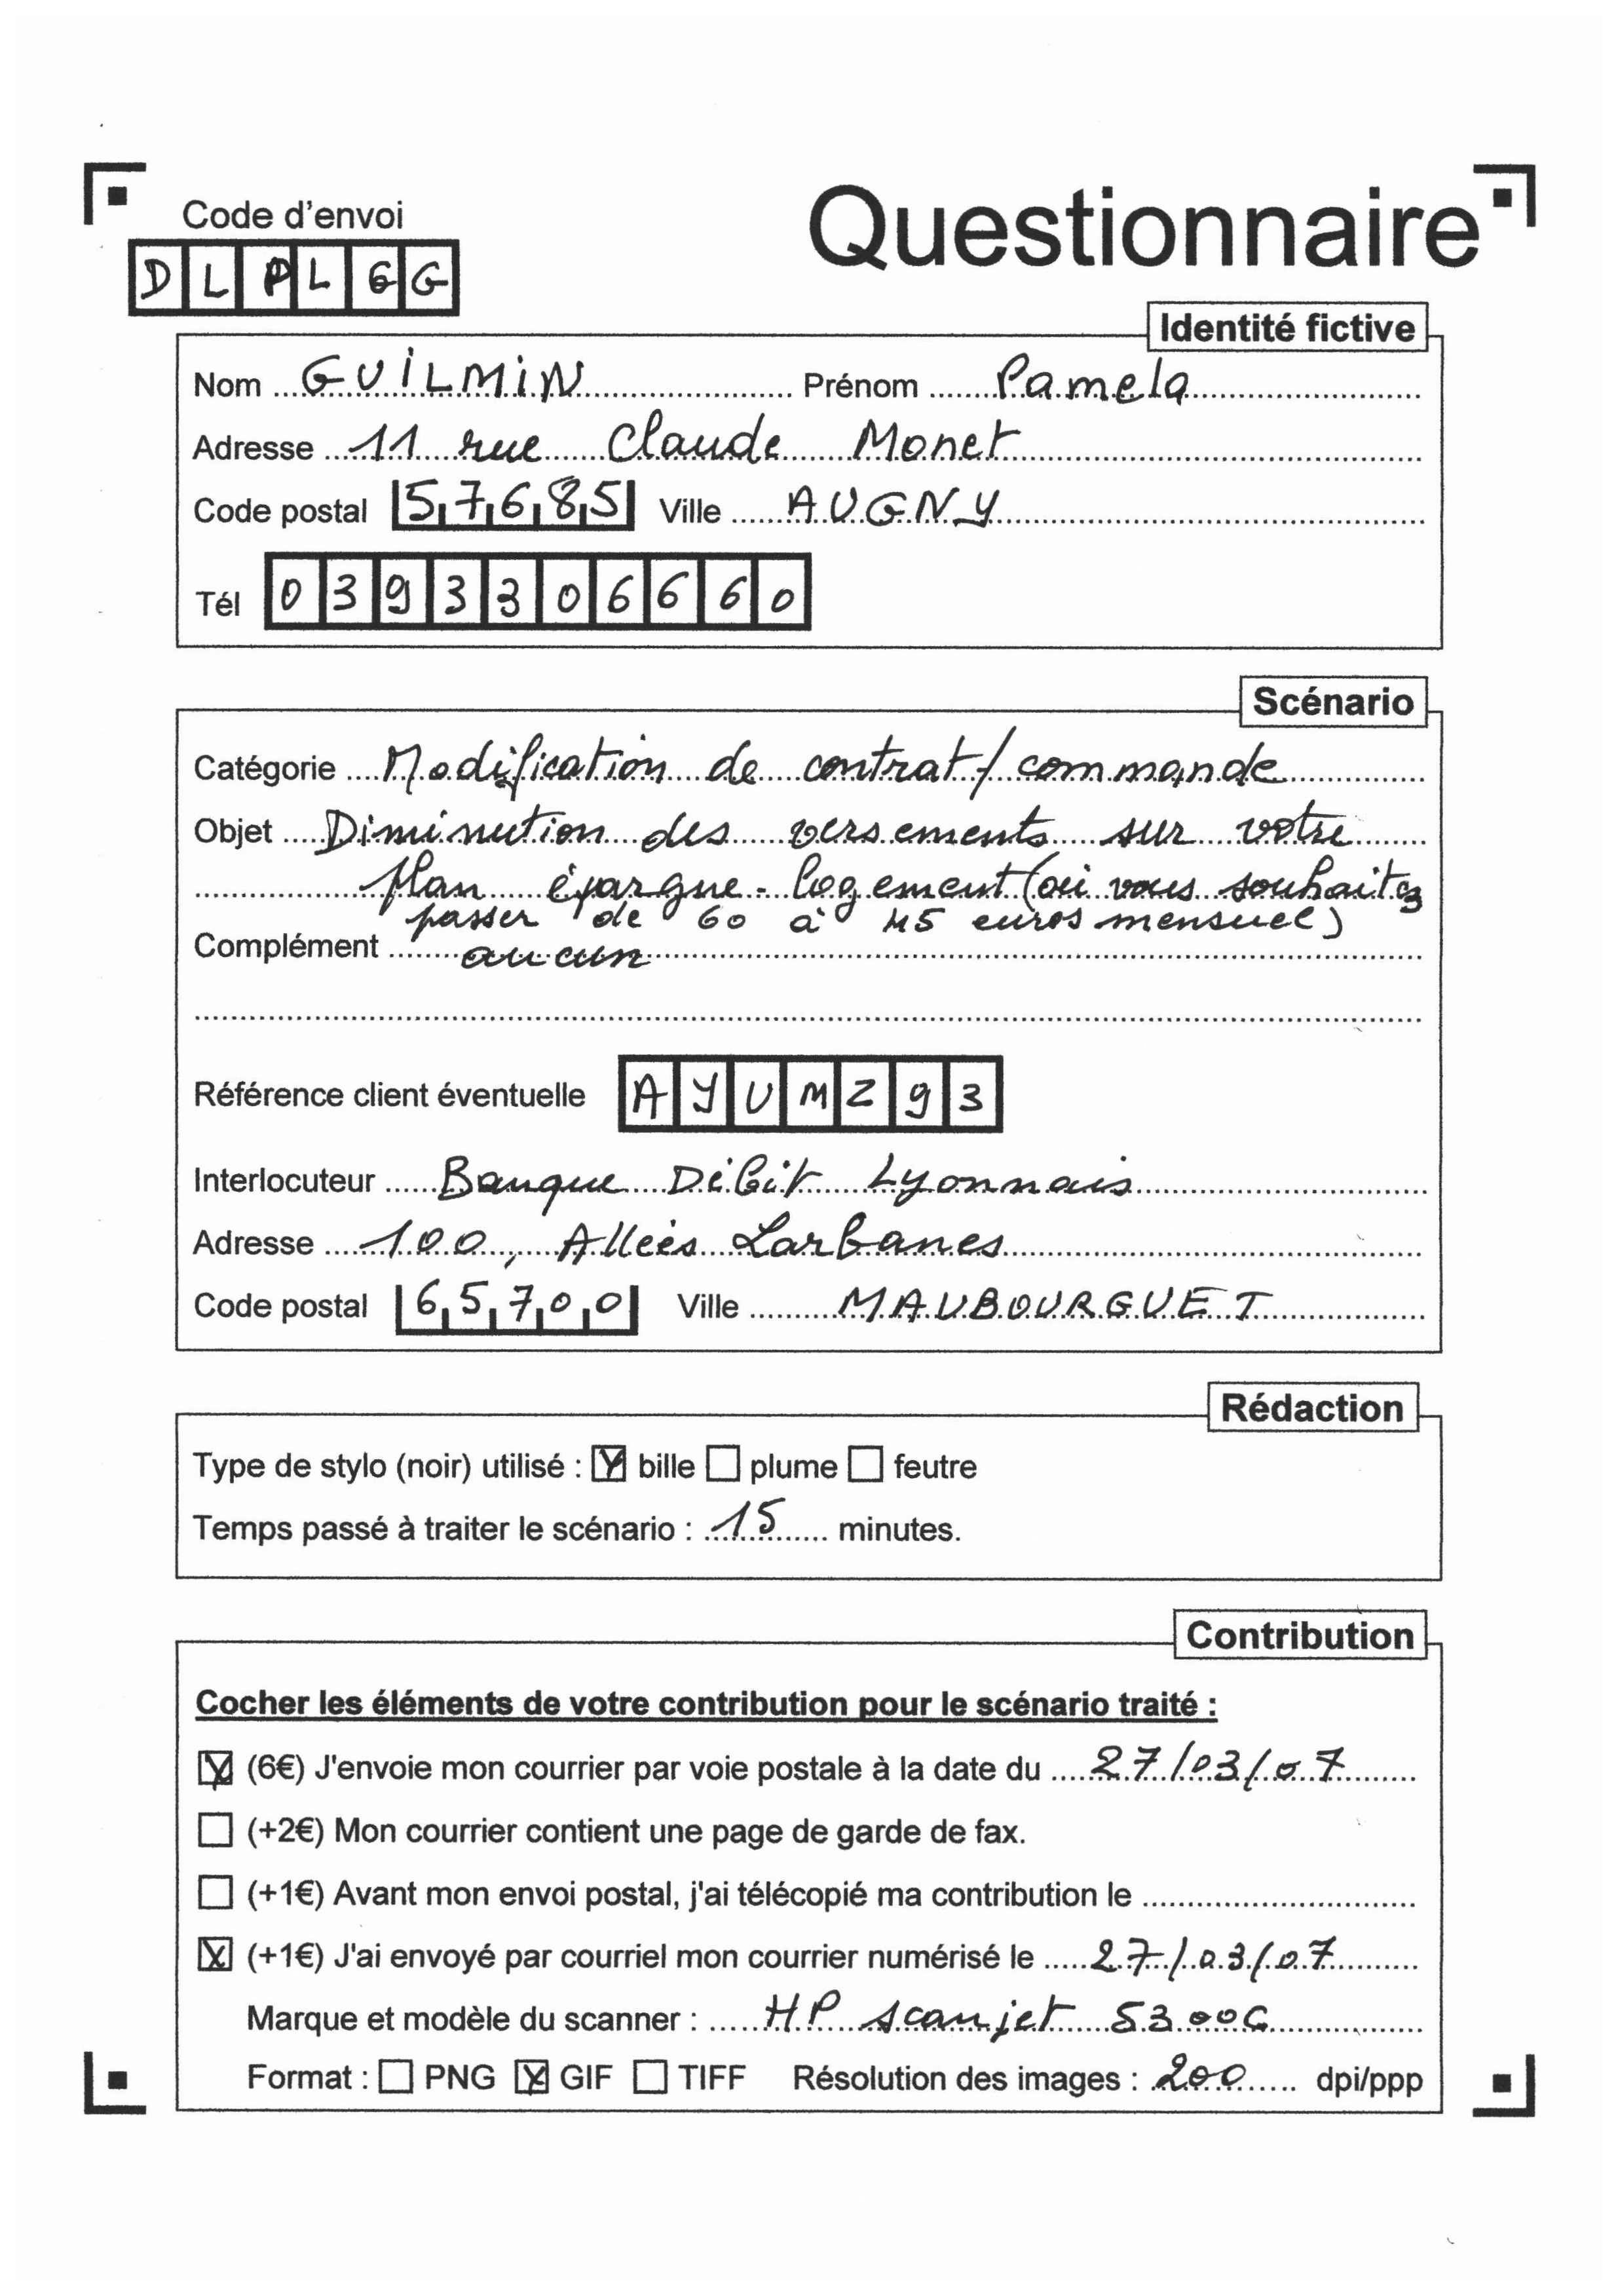 Questionnaire
Code d'envoi
DLPLEG
Identité fictive
Nom GUILMIN Prénom Pamela
Adresse 11 rue Claude Monet
Code postal 57685 Ville AUGNY
Tél 0393306660
Scénario
Catégorie Modification de contrat/commande
Objet Diminution des versements sur votre
plan épargne-logement (où vous souhaitez
passer de 60 à 45 euros mensuel)
Complément aucun
Référence client éventuelle AYUMZ93
Interlocuteur Banque Débit Lyonnais
Adresse 100, Allées Larbanes
Code postal 65700 Ville MAUBOURGUET
Rédaction
Type de stylo (noir) utilisé : ☒ bille ☐ plume ☐ feutre
Temps passé à traiter le scénario : 15 minutes.
Contribution
Cocher les éléments de votre contribution pour le scénario traité :
☒ (6€) J'envoie mon courrier par voie postale à la date du 27/03/07
☐ (+2€) Mon courrier contient une page de garde de fax.
☐ (+1€) Avant mon envoi postal, j'ai télécopié ma contribution le
☒ (+1€) J'ai envoyé par courriel mon courrier numérisé le 27/03/07
Marque et modèle du scanner : HP scanjet 5300C
Format : ☐ PNG ☒ GIF ☐ TIFF Résolution des images : 200 dpi/ppp